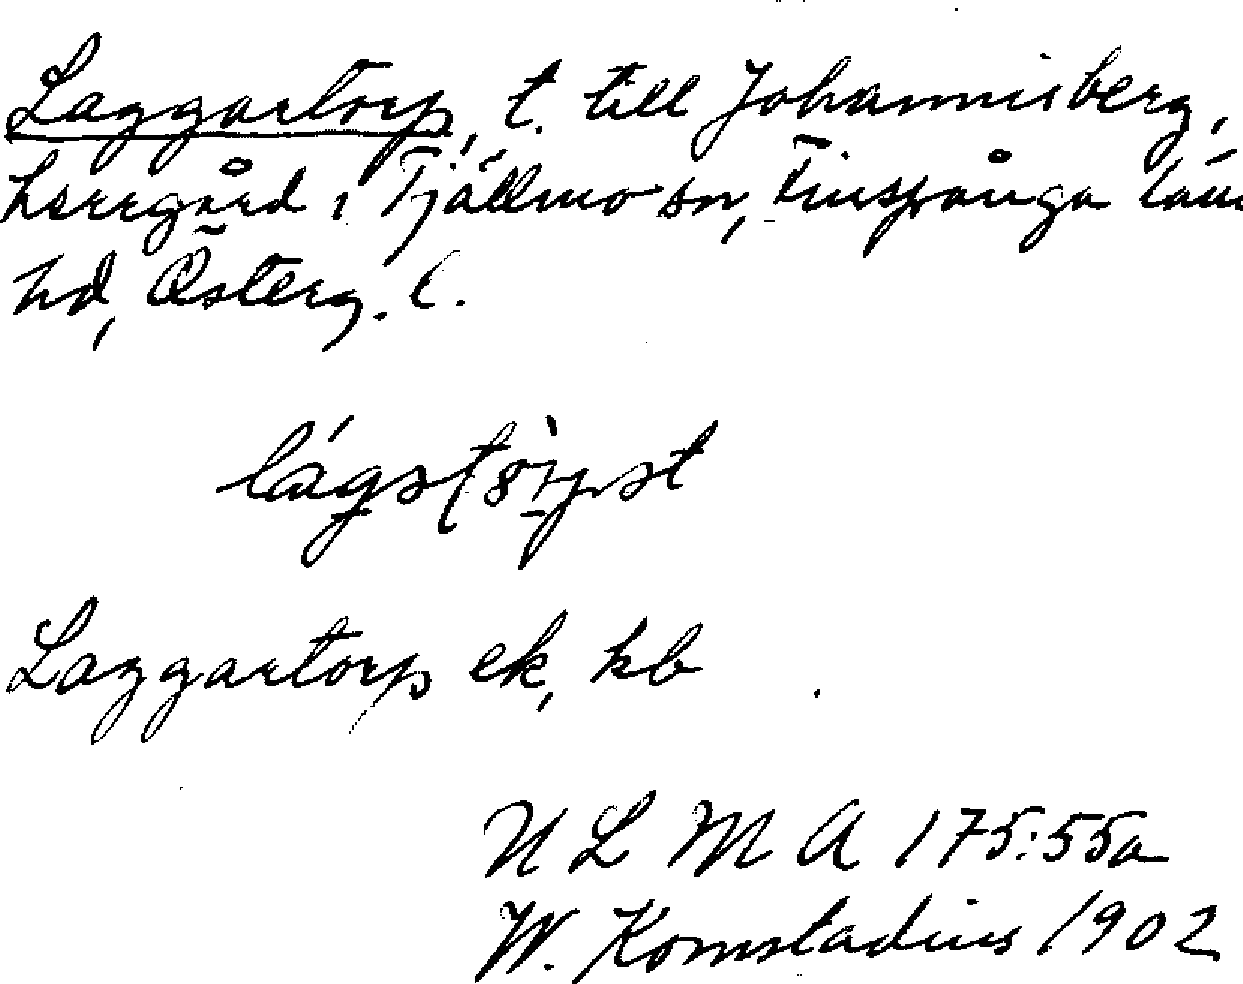 Laggartorp, t. till Johannisberg,
herrgård i Tjällmo sn, Finspånga län
hd, Österg. l.
Laggartorp ek, kb
N L M A 175:55a
W. Komstadius 1902